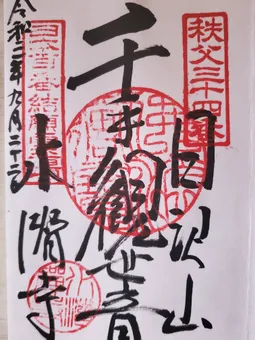 秩父三十四番
日沢山
千手觀世音
日本百番結願
水潛寺
令和二年九月二十